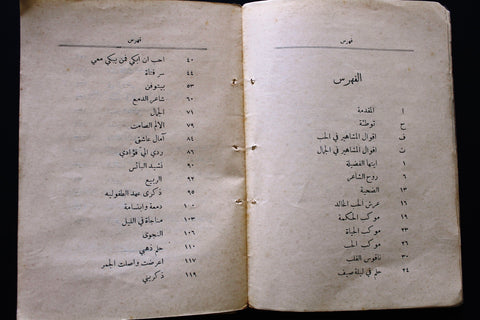 فهرس
الفهرس
ا المقدمة
ح توطئة
ف اقوال المشاهير في الحب
ث اقوال المشاهير في الجمال
١ ايتها الفضيلة
٦ روح الشاعر
١٣ الضحية
١٦ عرش الحب الخالد
١٩ موكب الحكمة
٢١ موكب الحياة
٢٣ موكب الحب
٣٠ ناقوس القلب
٢٤ حلم في ليلة صيف
فهرس
احب ان ابكي فمن يبكي معي ٤٠
سر فتاة ٤٤
بيتوفن ٥٣
شاعر الدمع ٦٠
الجمال ٧١
الالم الصامت ٧٩
آمال عاشق ٨٤
ردي اليّ فؤادي ٨٦
نشيد اليأس ٩٠
الربيع ٩٢
ذكرى عهد الطفوليه ٩٥
دمعة وابتسامة ١٠٠
مناجاة في الليل ١٠٣
النجوى ١٠٦
حلم ذهبي ١١٠
اعرضت واصلت الجمر ١١٧
ذكريني ١١٩